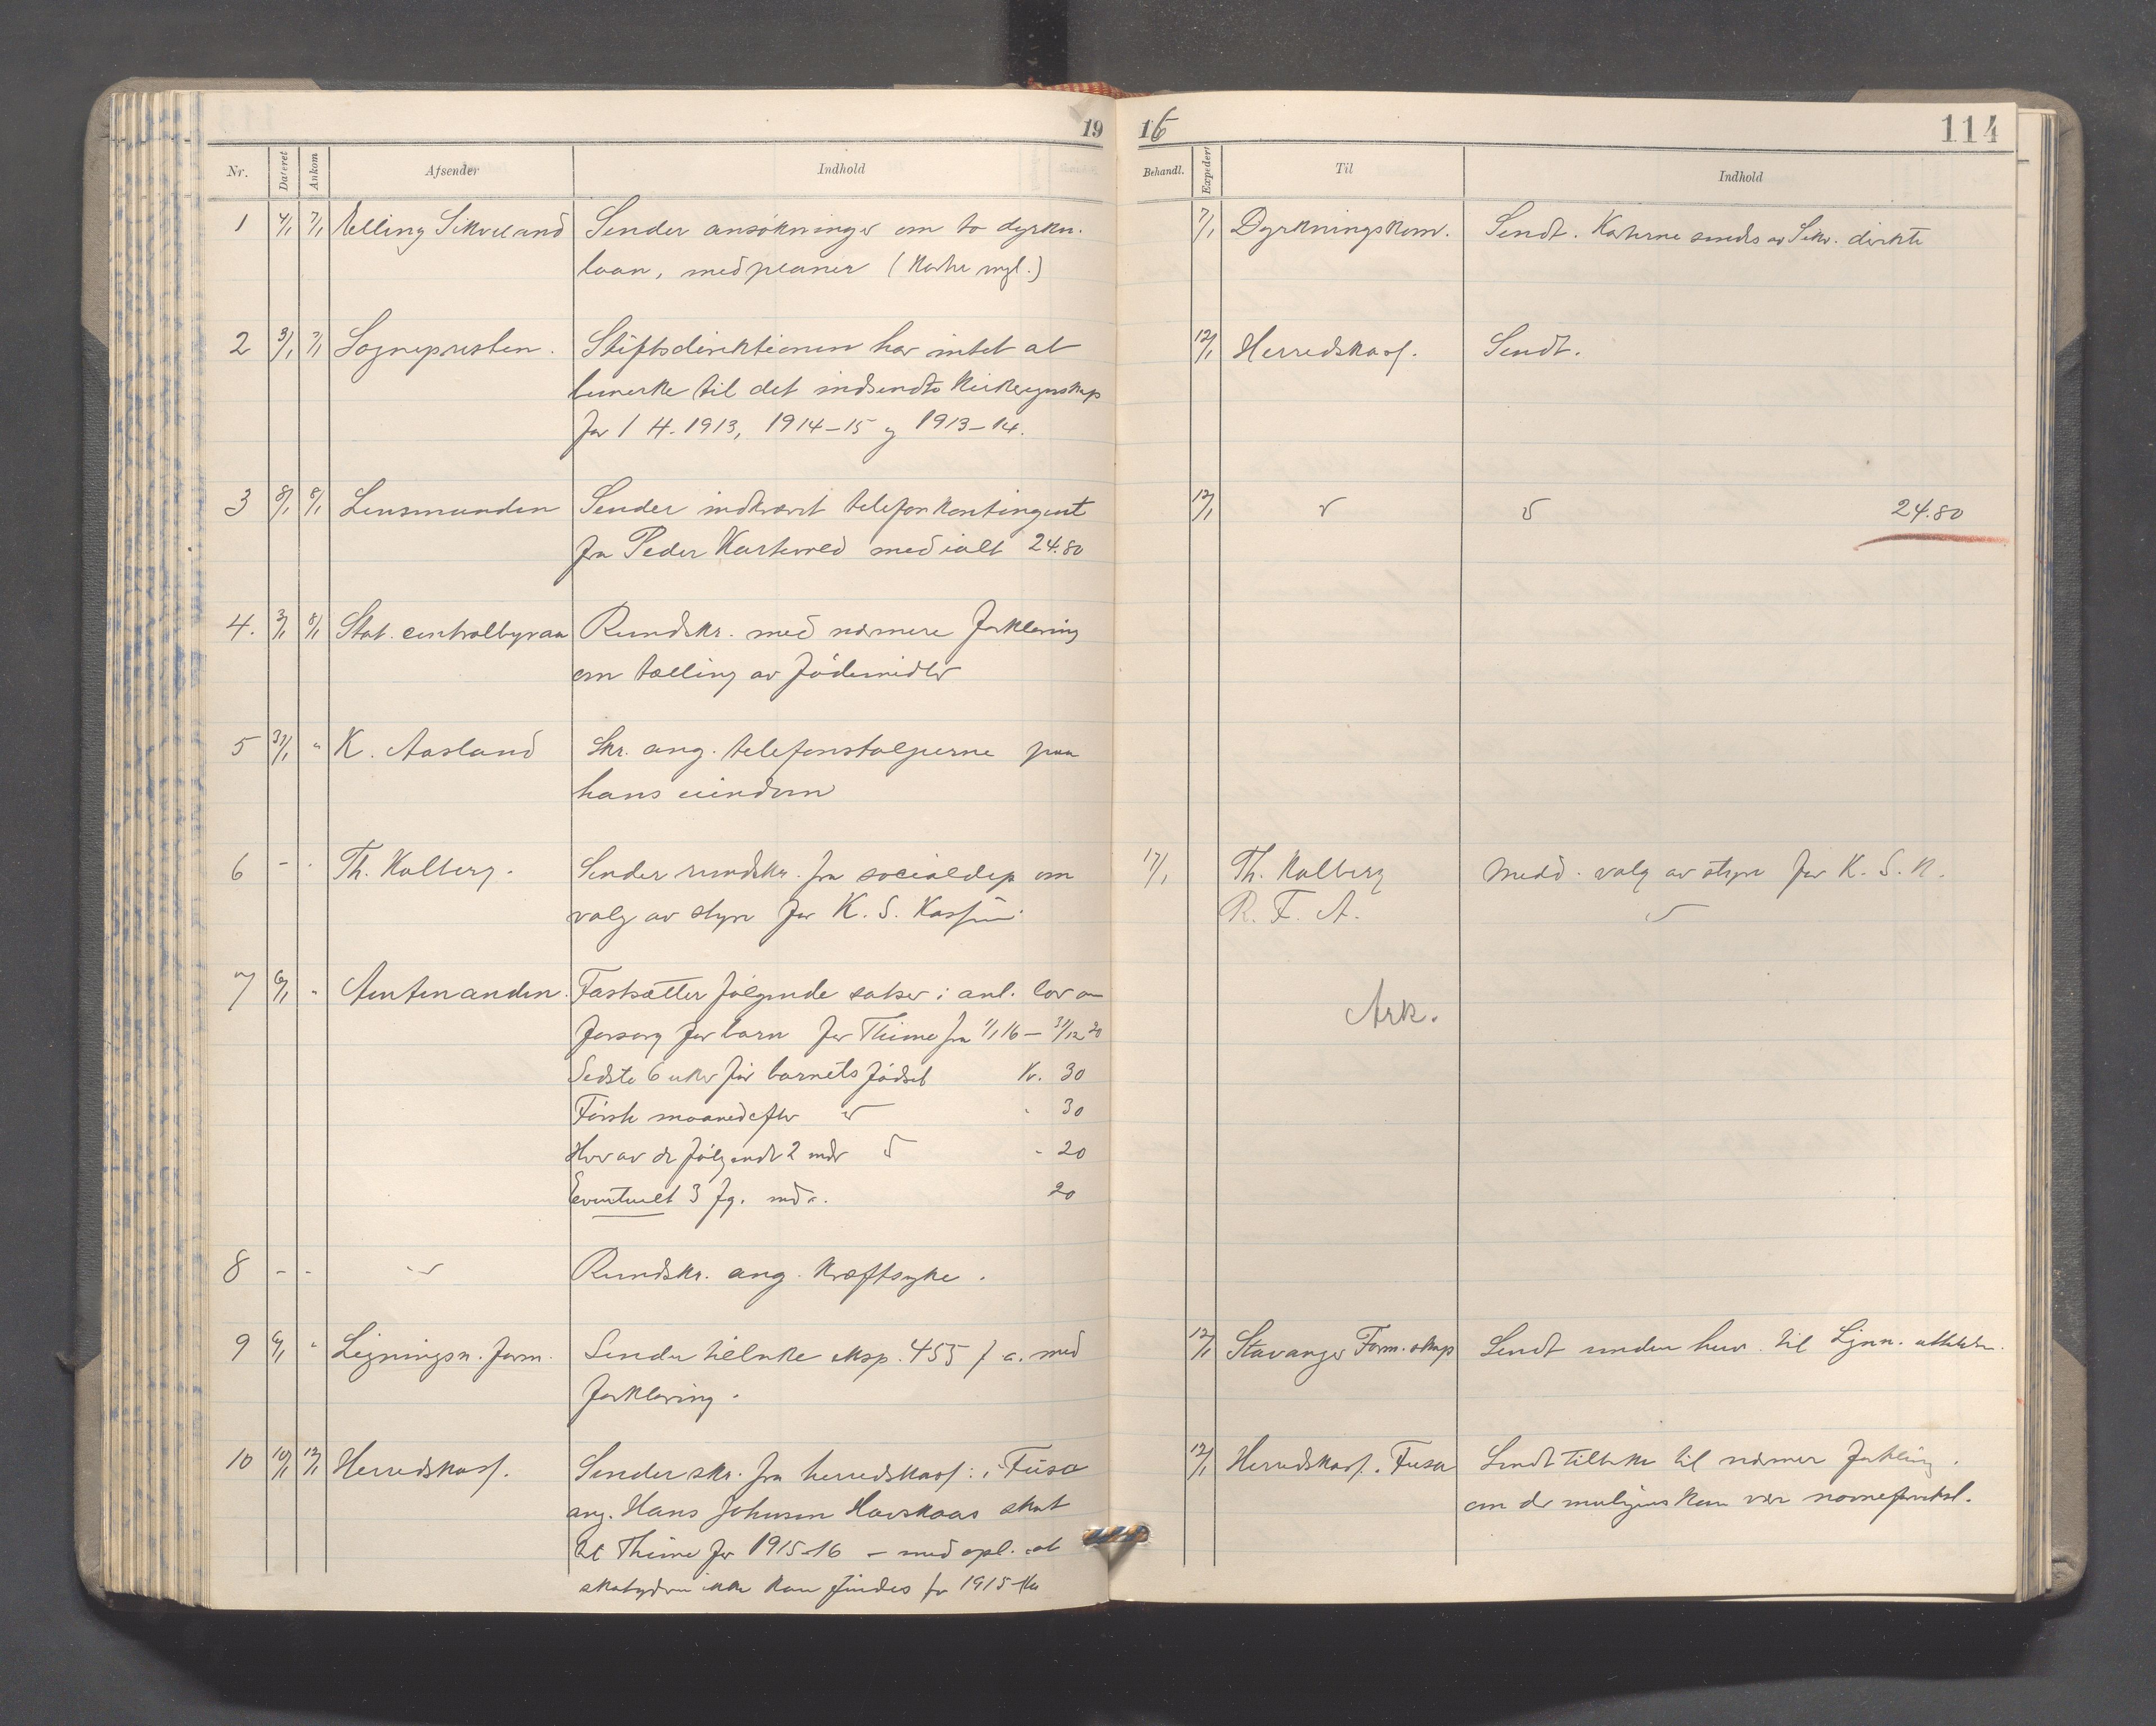 19 16 114
Nr. Dateret Ankom Afsender Indhold Behandl. Expedert Til Indhold
1 4/1 7/1 Elling Sikveland Sender ansøkninger om to dyrkn. 7/1 Dyrkningskom. Sendt. Karterne sendes av Sekr. direkte
laan, med planer (Karter mgl.)
2 3/1 7/1 Sognepresten. Stiftsdirektionen har intet at 12/1 Herredskass. Sendt.
bemerke til det indsendte kirkeregnskap
for 1 H. 1913, 1914-15 og 1913-14.
3 8/1 8/1 Lensmanden Sender indkrævet telefonkontingent 12/1 24.80
fra Peder Kartevold med ialt 24.80
4. 3/1 8/1 Stat. centralbyraa Rundskr. med nærmere forklaring
om tælling av fødemidler
5 31/1 " K. Aasland Skr. ang. telefonstolperne paa
hans eiendom
6 - · Th. Kalberg. Sender rundskr. fra socialdep om 17/1 Th. Kalberg Medd. valg av styre for K. S. K.
valg av styre for K. S. Kassen. R. F. A.
7 6/1 " Amtmanden. Fastsætter følgende satser i anl. lov om Ark.
forsorg for barn for Thime fra 1/1 16 – 31/12 20
Sidste 6 uker før barnets fødsel Kr. 30
Første maaned efter - 30
Hver av de følgende 2 mdr - 20
Eventuelt 3 fg. mdr. 20
8 - - Rundskr. ang. kræftsyke.
9 6/1 " Ligningsn. form. Sender tilbake eksp. 455 f. a. med 12/1 Stavanger Form.skap Sendt under henv. til Lignn. attesten.
forklaring.
10 10/1 12/1 Herredskass. Sender skr. fra herredskass. i Fusa 12/1 Herredskass. Fusa Sendt tilbake til nærmer forklaring.
ang. Hans Johnsen Havskaas skat om der muligens kan være navneforveksl.
til Thime for 1915-16 – med opl. at
skatyderen ikke kan findes for 1915-16